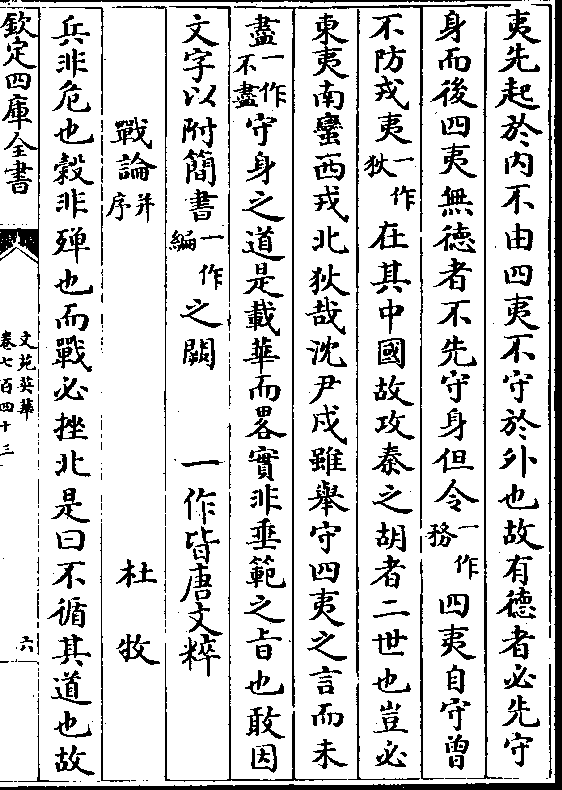 夷先起於內不由四夷不守於外也故有德者必先守
身而後四夷無德者不先守身但令一作務四夷自守曾
不防戎夷一作狄在其中國故攻秦之胡者二世也豈必
東夷南蠻西戎北狄哉沈尹戍雖舉守四夷之言而未
盡一作不盡守身之道是載華而畧實非垂範之旨也敢因
文字以附簡書一作編之闕 一作皆唐文粹
戰論并序 杜牧
兵非危也穀非殫也而戰必挫北是曰不循其道也故
欽定四庫全書
文苑英華
卷七百四十三
六